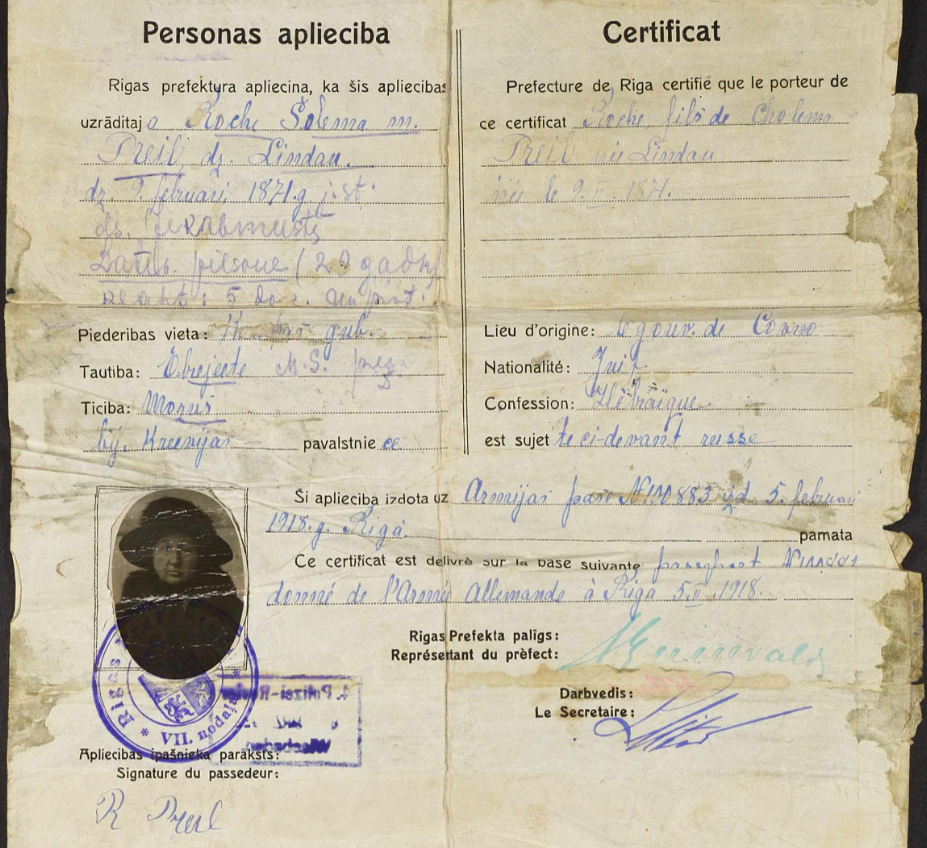 Personas apliecība
Rīgas prefektura apliecina, ka šis apliecības
uzrāditaj a Roche Šolema m.
Preil, dz. Lindau.
dz. 9. februari 1871. g.
Jēkabmiests
Latvijas pilsone (29
5
Piederības vieta: gub.
Tautība: Ebrejiete M.S.
Ticība: Mozus
bij. Kreevijas pavalstniece
Certificat
Prefecture de Riga certifie que le porteur de
ce certificat Roche, fils de Cholema
Preil née Lindau
née le 9. II. 1871.
Lieu d'origine: le gouv. de Covno
Nationalité: Juif
Confession: Hébraïque
est sujet le ci-devant russe
Ši apliecība izdota uz Armijas pase N 100883 izd. 5. februari
1918. g. Rigā. pamata
Ce certificat est delivrė sur la base suivante passeport
donné de l'Armée Allemande à Riga 5. II. 1918.
Rigas Prefekta palīgs:
Représertant du prèfect:
Darbvedis:
Le Secretaire:
Rīgas
VII. nodaļa
Polizei-Revier
Wiesbaden
Apliecibas īpašnieka paraksts:
Signature du passedeur:
R Preil